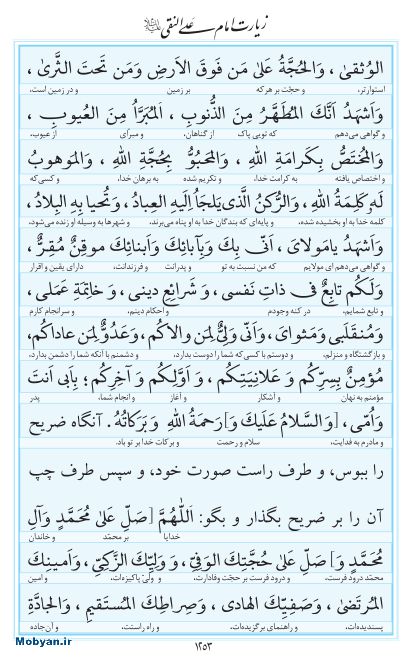 زیارت امام علی النقی
الْوُثْقىٰ ، وَالْحُجَّةُ عَلىٰ مَن فَوْقَ الْاَرضِ وَمَن تَحتَ الثَّرىٰ ،
استوارتر، و حجّت بر هر که بر زمین و در زمین است.
وَاَشْهَدُ اَنَّكَ الْمُطَهَّرُ مِنَ الذُّنوبِ ، الْمُبَرَّأُ مِنَ الْعُيوبِ ،
و گواهی می‌دهم که تویی پاک از گناهان، و مبرای از عیوب.
وَالْمُخْتَصُّ بِكَرامَةِ اللهِ ، وَالْمَحبُوُّ بِحُجَّةِ اللهِ ، وَالْمَوهوبُ
و اختصاص یافته به کرامت خدا، و تکریم شده به برهان خدا، و کسی‌که
لَهُ كَلِمَةُ اللهِ ، وَالرُّكنُ الَّذى يَلجَأُ اِلَيهِ الْعِبادُ ، وَتُحيا بِهِ الْبِلادُ ،
کلمه خدا به او بخشیده شده، و پایه‌ای که بندگان خدا به او پناه می‌برند. و شهرها به وسیله او زنده می‌شود.
وَاَشْهَدُ يامَولاىَ ، اَنّى بِكَ وَبِآبائِكَ وَاَبنائِكَ موقِنٌ مُقِرٌّ ،
و گواهی می‌دهم ای مولایم که من نسبت به تو و پدرانت و فرزندانت، دارای یقین و اقرار
وَلَكُم تابِعٌ فى ذاتِ نَفسى ، وَ شَرائِعِ دينى ، وَ خاتِمَةِ عَمَلى ،
و تابع شمایم، در کنه وجودم و احکام دینم، و سرانجام کارم
وَمُنقَلَبى وَمَثواىَ ، وَاَنّى وَلِىٌّ لِمَن والاكُم ، وَعَدُوٌّ لِمَن عاداكُم ،
و بازگشتگاه و منزلم، و دوستم با کسی که شما را دوست بدارد، و دشمنم با آنکه شما را دشمن بدارد،
مُؤمِنٌ بِسِرِّكُم وَ عَلانِيَتِكُم ، وَ اَوَّلِكُم وَ آخِرِكُم ؛ بِاَبى اَنتَ
مؤمنم به نهان و آشکار و آغاز و انجام شما، پدر
وَاُمّى ، [وَالسَّلامُ عَلَيكَ وَ]رَحمَةُ اللهِ وَبَرَكاتُهُ . آنگاه ضریح
و مادرم به فدایت، سلام و رحمت و برکات خدا بر تو باد.
را ببوس، و طرف راست صورت خود، و سپس طرف چپ
آن را بر ضریح بگذار و بگو: اَللّهُمَّ [صَلِّ عَلىٰ مُحَمَّدٍ وَآلِ
خدایا بر محمّد و خاندان
مُحَمَّدٍ وَ] صَلِّ عَلىٰ حُجَّتِكَ الْوَفِىِّ ، وَ وَلِيِّكَ الزَّكِىِّ ، وَاَمينِكَ
محمّد درود فرست. و درود فرست بر حجّت وفادارت. و ولیّ پاکیزه‌ات. و امین
الْمُرتَضىٰ ، وَصَفِيِّكَ الْهادى ، وَصِراطِكَ الْمُستَقيمِ ، وَالْجادَّةِ
پسندیده‌ات. و راهنمای برگزیده‌ات. و راه راستت. و آن جاده
۱۲۵۳
Mobyan.ir